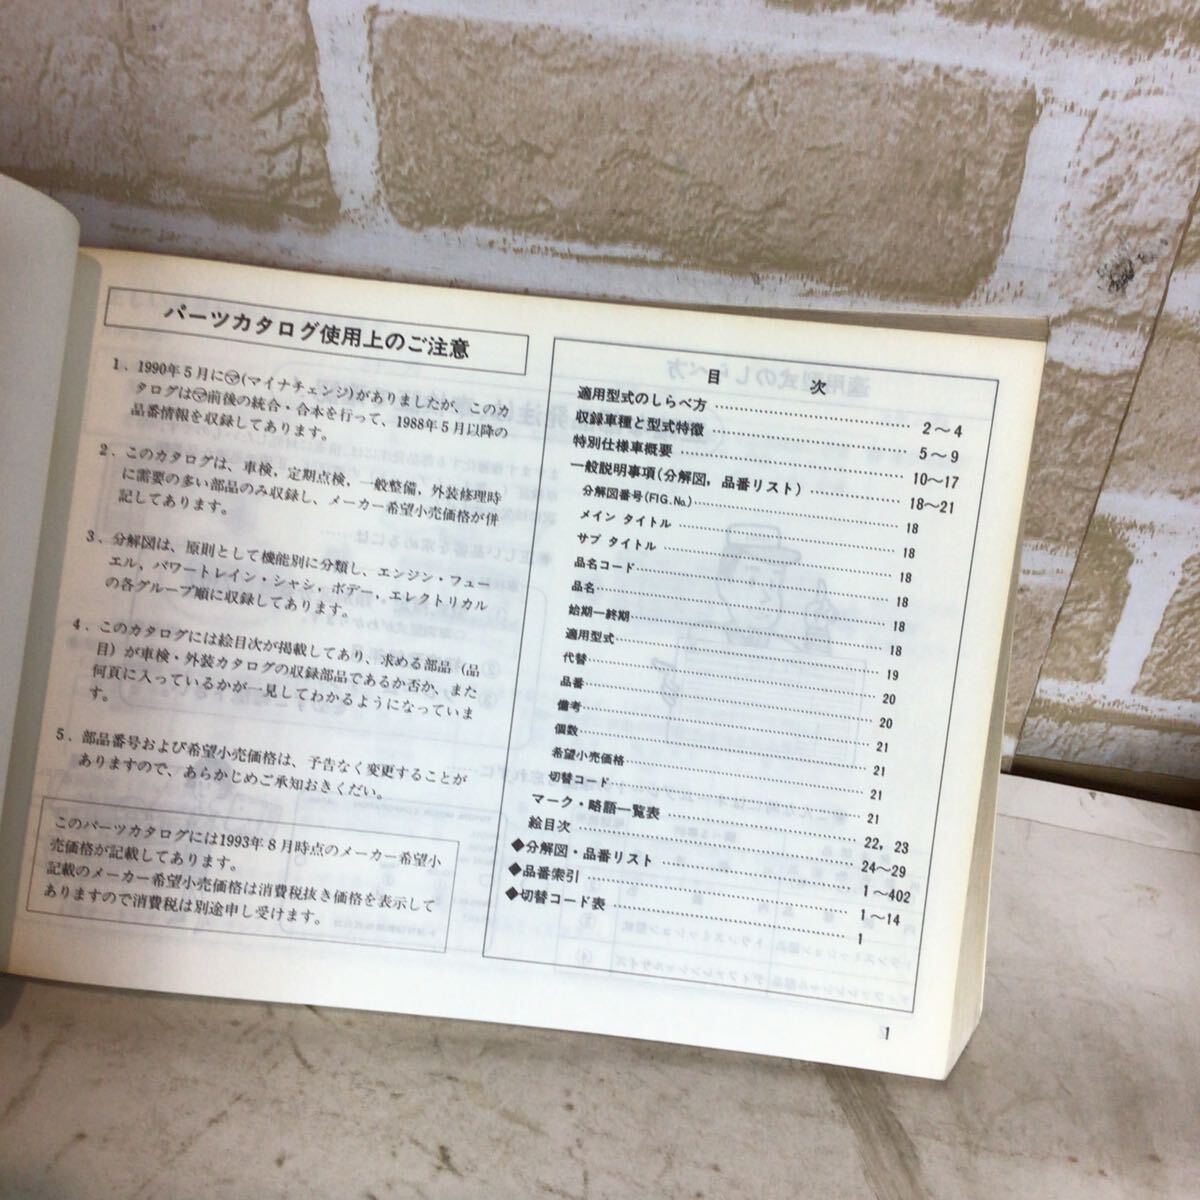 パーツカタログ使用上のご注意
1. 1990年5月に㋮(マイナチェンジ)がありましたが、このカ
タログは㋮前後の統合・合本を行って、1988年5月以降の
品番情報を収録してあります。
2. このカタログは、車検，定期点検，一般整備，外装修理時
に需要の多い部品のみ収録し、メーカー希望小売価格が併
記してあります。
3. 分解図は、原則として機能別に分類し、エンジン・フュー
エル，パワートレイン・シャシ，ボデー，エレクトリカル
の各グループ順に収録してあります。
4. このカタログには絵目次が掲載してあり、求める部品（品
目）が車検・外装カタログの収録部品であるか否か、また
何頁に入っているかが一見してわかるようになっていま
す。
5. 部品番号および希望小売価格は、予告なく変更することが
ありますので、あらかじめご承知おきください。
このパーツカタログには1993年8月時点のメーカー希望小
売価格が記載してあります。
記載のメーカー希望小売価格は消費税抜き価格を表示して
ありますので消費税は別途申し受けます。
目 次
適用型式のしらべ方 2～4
収録車種と型式特徴 5～9
特別仕様車概要 10～17
一般説明事項(分解図，品番リスト) 18～21
分解図番号(FIG.No.) 18
メイン タイトル 18
サブ タイトル 18
品名コード 18
品名 18
始期ー終期 18
適用型式 19
代替 20
品番 20
備考 21
個数 21
希望小売価格 21
切替コード 21
マーク・略語一覧表 22，23
絵目次 24～29
◆分解図・品番リスト 1～402
◆品番索引 1～14
◆切替コード表 1
1